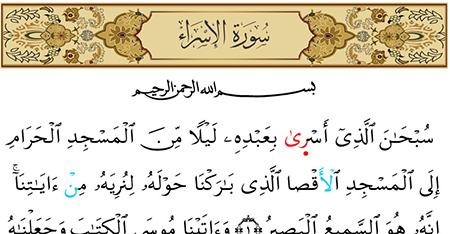 سُورَةُ الإِسْرَاء
بِسْمِ اللهِ الرَّحْمٰنِ الرَّحِيمِ
سُبْحَٰنَ ٱلَّذِىٓ أَسْرِىٰ بِعَبْدِهِۦ لَيْلًا مِّنَ ٱلْمَسْجِدِ ٱلْحَرَامِ
إِلَى ٱلْمَسْجِدِ ٱلْأَقْصَا ٱلَّذِى بَٰرَكْنَا حَوْلَهُۥ لِنُرِيَهُۥ مِنْ ءَايَٰتِنَآۚ
إِنَّهُۥ هُوَ ٱلسَّمِيعُ ٱلْبَصِيرُ ﴿١﴾ وَءَاتَيْنَا مُوسَى ٱلْكِتَٰبَ وَجَعَلْنَٰهُ